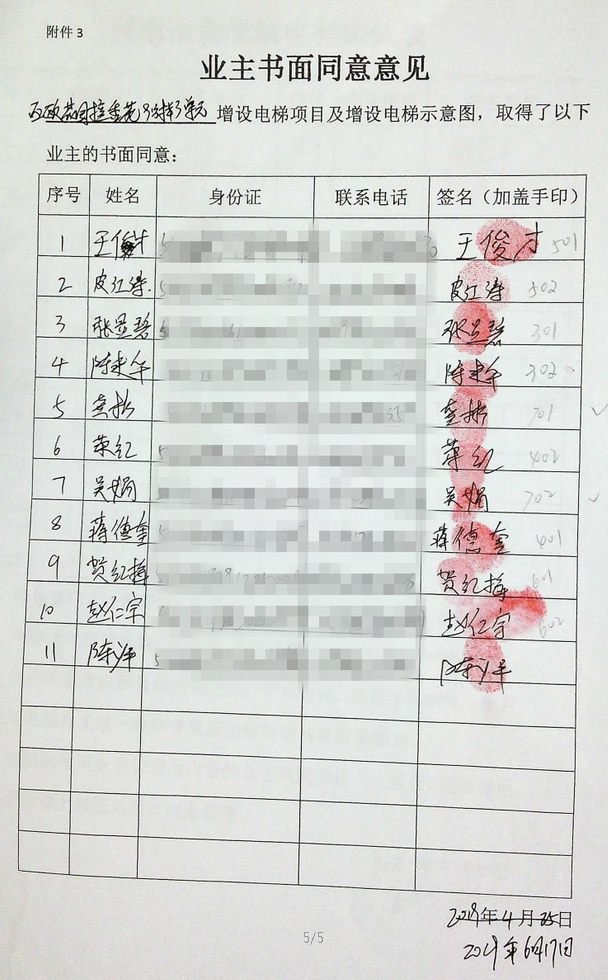 附件3
业主书面同意意见
增设电梯项目及增设电梯示意图，取得了以下
业主的书面同意：
序号 姓名 身份证 联系电话 签名（加盖手印）
1 王俊才 王俊才 501
2 皮江涛 皮江涛 502
3 张显碧 张显碧 301
4 陈建华 陈建华 302
5 龚彬 龚彬 701
6 荣红 荣红 402
7 吴娟 吴娟 702
8 蒋德奎 蒋德奎 401
9 贺红梅 贺红梅 601
10 赵仁宗 赵仁宗 602
11 陈 陈
2019年4月25日
2019年6月17日
5/5